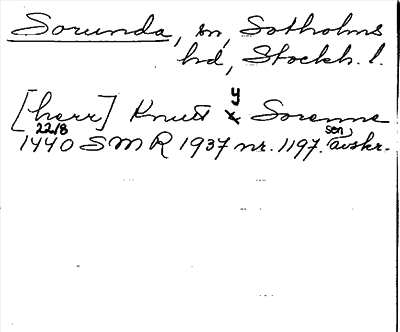 Sorunda, sn, Sotholms
hd, Stockh. l.
[herr] Knutt y Sorenne
22/8 1440 SMR 1937 nr. 1197. sen. avskr.